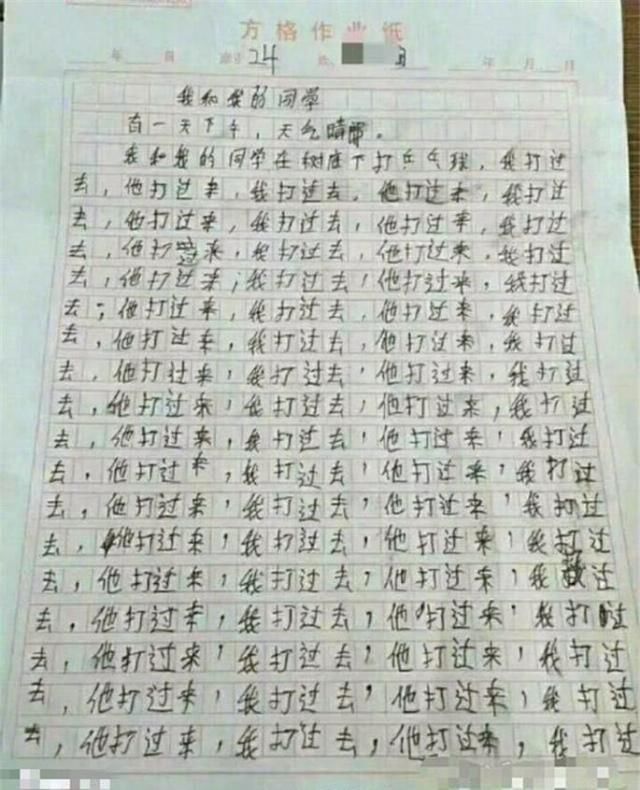 方格作业纸
年 24 年 月 日
我和我的同学
有一天下午，天气晴朗。
我和我的同学在树底下打乒乓球，我打过
去，他打过来，我打过去，他打过来，我打过
去，他打过来，我打过去，他打过来，我打过
去，他打过来，我打过去，他打过来，我打过
去，他打过来，我打过去，他打过来，我打过
去，他打过来，我打过去，他打过来，我打过
去，他打过来，我打过去，他打过来，我打过
去，他打过来，我打过去，他打过来，我打过
去，他打过来，我打过去，他打过来，我打过
去，他打过来，我打过去，他打过来，我打过
去，他打过来，我打过去，他打过来，我打过
去，他打过来，我打过去，他打过来，我打过
去，他打过来，我打过去，他打过来，我打过
去，他打过来，我打过去，他打过来，我过
去，他打过来，我打过去，他打过来，我打过
去，他打过来，我打过去，他打过来，我打过
去，他打过来，我打过去，他打过来，我打过
去，他打过来，我打过去，他打过来，我打过